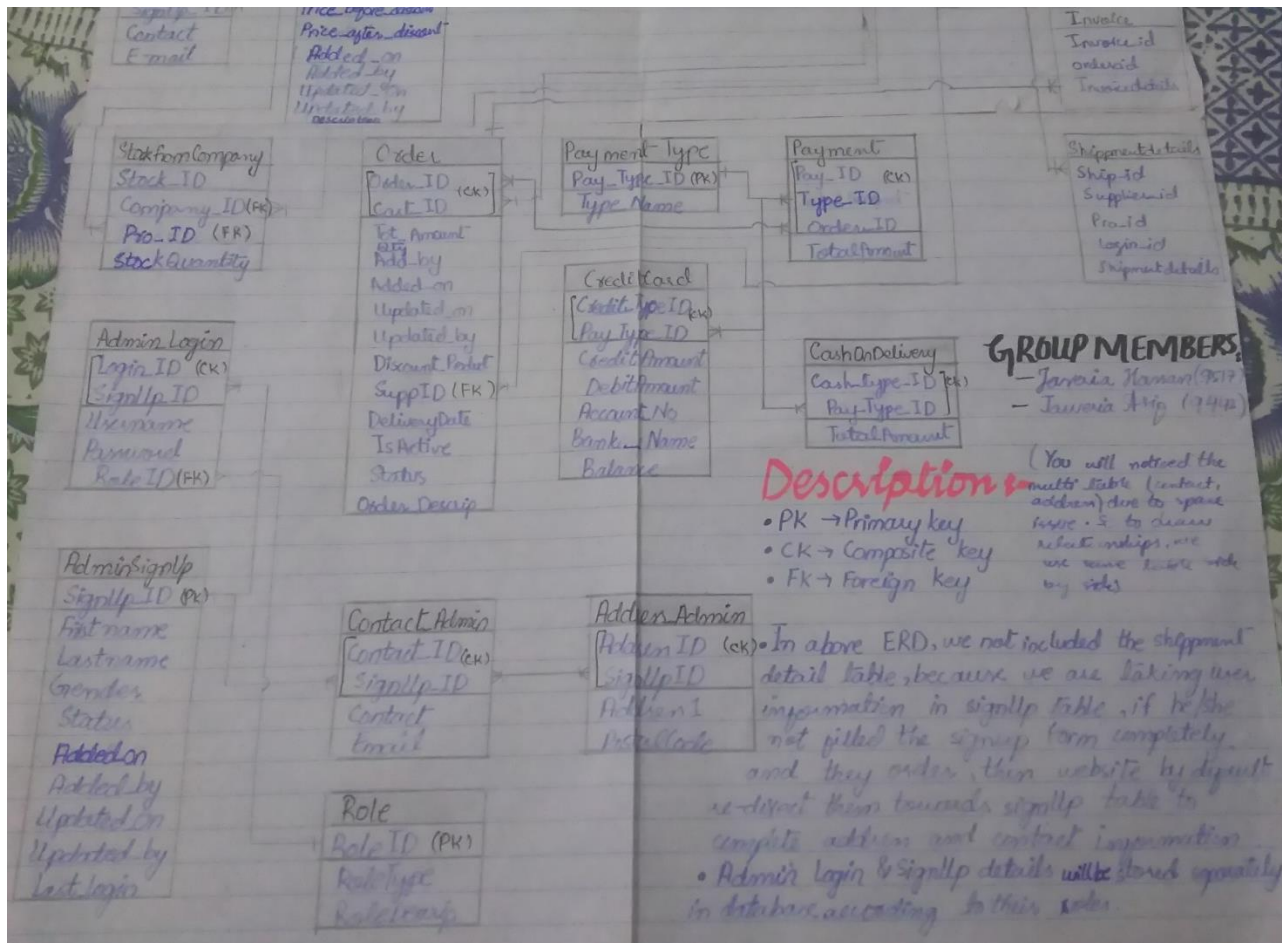 Contact
E-mail
Price_after_discount
Added_on
Added_by
Updated_on
Updated_by
Description
Invoice
Invoice_id
orderid
Invoicedetails
StockfromCompany
Stock_ID
Company_ID(FK)
Pro_ID (FK)
StockQuantity
Order
Order_ID (CK)
Cart_ID
Tot_Amount
Qty
Add_by
Added_on
Updated_on
Updated_by
Discount
SuppID (FK)
DeliveryDate
IsActive
Status
Order_Descrip
Payment_Type
Pay_Type_ID (PK)
Type_Name
Payment
Pay_ID (CK)
Type_ID
Order_ID
TotalAmount
Shippmentdetails
Ship_id
Supplier_id
Pro_id
Login_id
Shipmentdetails
CreditCard
CreditTypeID (CK)
PayType_ID
CreditAmount
DebitAmount
Account_No
Bank_Name
Balance
CashOnDelivery
Cash_Type_ID (CK)
Pay_Type_ID
TotalAmount
GROUP MEMBERS:
Admin_Login
Login_ID (CK)
SignUp_ID
Username
Password
RoleID (FK)
Description
• PK → Primary key
• CK → Composite key
• FK → Foreign key
(You will noticed the
multi table (contact,
address) due to space
issue. & to draw
relationships, we
side
by side)
AdminSignUp
SignUp_ID (PK)
Firstname
Lastname
Gender
Status
Added_on
Added_by
Updated_on
Updated_by
Last_login
Contact_Admin
Contact_ID (CK)
SignUp_ID
Contact
Email
Address_Admin
Address ID (CK)
SignUpID
Address1
PostalCode
Role
RoleID (PK)
RoleType
• In above ERD, we not included the shippment
detail table, because we are taking user
information in signUp table, if he/she
not filled the signup form completely
and they order, then website by default
re-direct them towards signUp table to
complete address and contact information.
• Admin Login & SignUp details will be stored separately
in database according to their roles